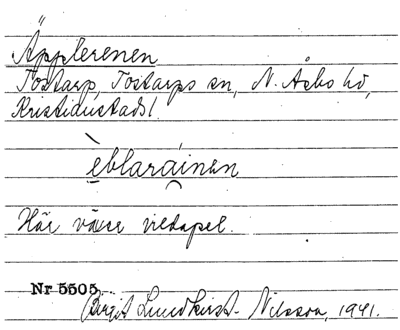 Äpplerenen
Tostarp, Tostarps sn, N. Åsbo hd,
Kristianstads l.
èblaráinen
Här växer vildapel.
Nr 5505
Birgit Lundkvist-Nilsson, 1941.